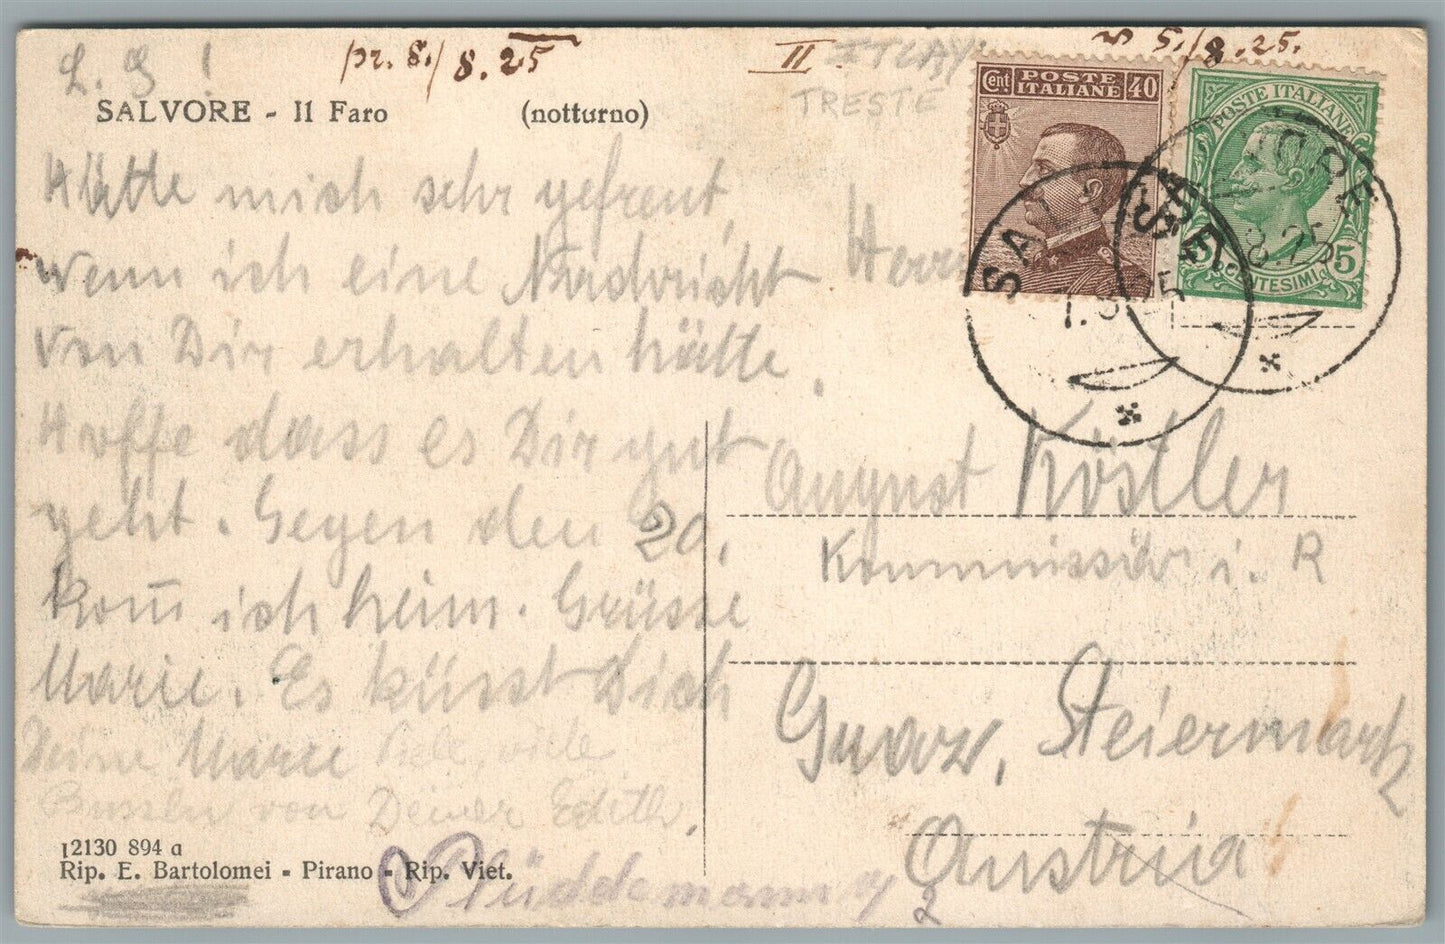 L. G!
pr. 8./8.25
II
5./8.25.
ITLAY
TRESTE
SALVORE - Il Faro (notturno)
Hätte mich sehr gefreut,
wenn ich eine Nachricht
von Dir erhalten hätte.
Hoffe dass es Dir gut
geht. Gegen den 20.
kom̅ ich heim. Grüsse
Marie. Es küsst Dich
Deine Marie viele
Bussln von Deiner Edith.
12130 894 a
Rip. E. Bartolomei - Pirano - Rip. Viet.
Cent POSTE ITALIANE 40
POSTE ITALIANE
5 CENTESIMI 5
SAL
8.25
Herrn
August Köstler
Kommissär i. R
Graz, Steiermark
Austria
2